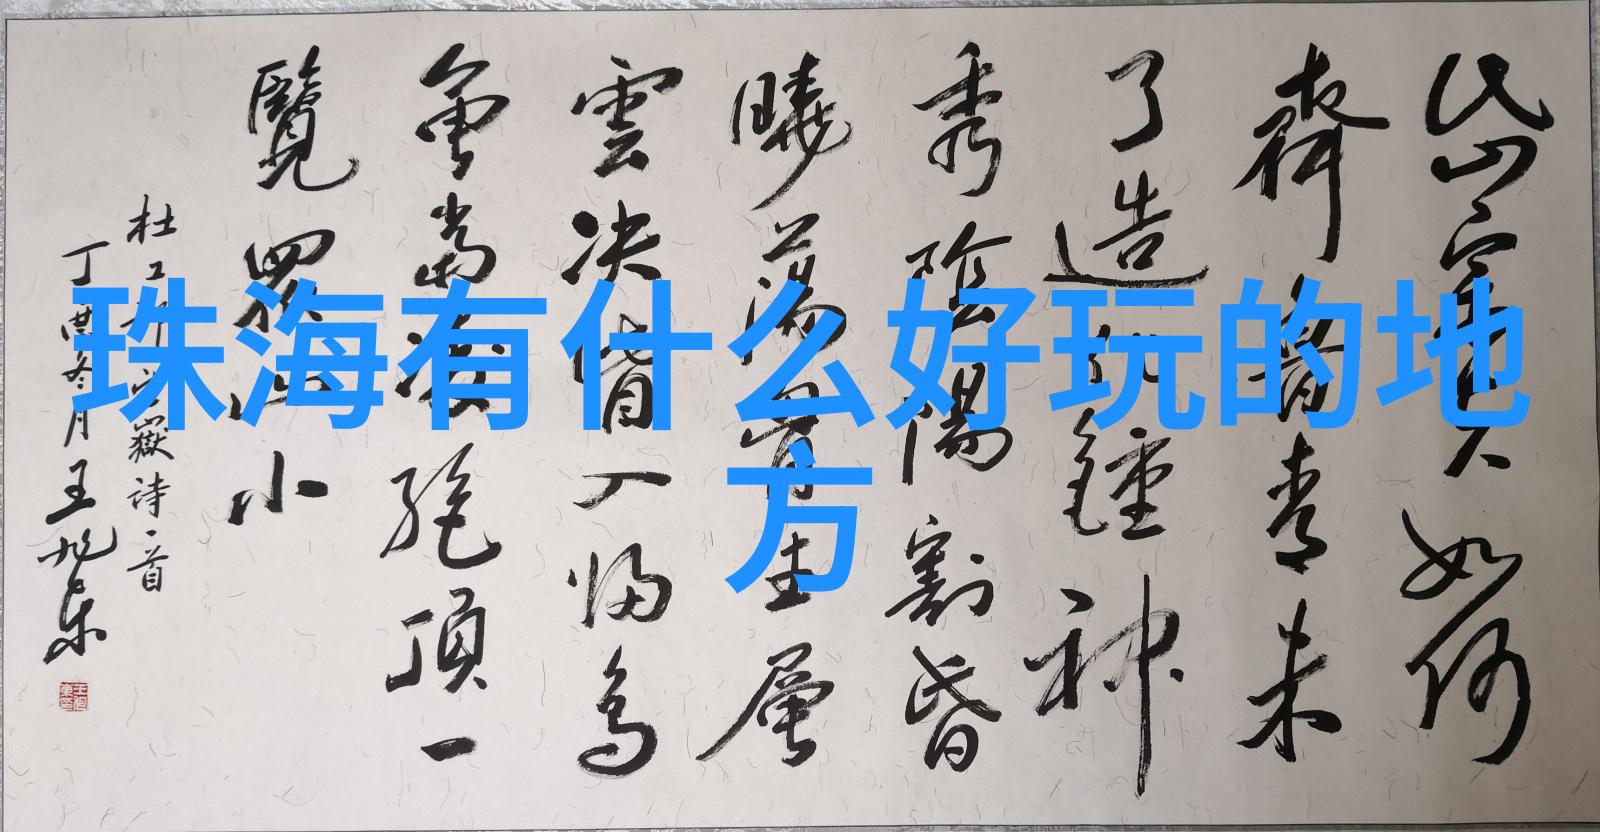 珠海有什么好玩的地
方
岱宗夫如何
齊魯青未
了造化鍾神
秀陰陽割昏
曉蕩胸生層
雲决眥入歸鳥
會當凌絕頂一
覽眾山小
杜工部望嶽詩一首
丁酉冬月王旭东